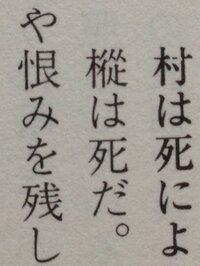 村は死によ
樅は死だ。
や恨みを残し